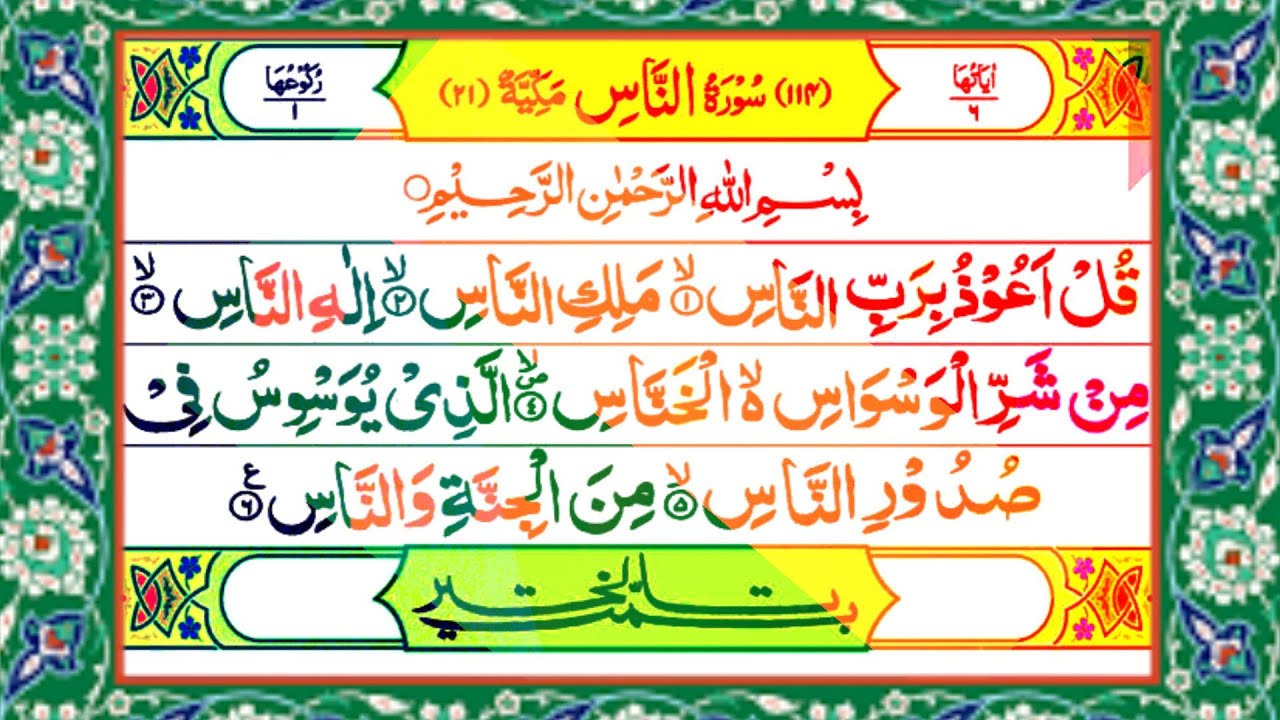 اٰيَاتُهَا ٦
(١١٤) سُوْرَةُ النَّاسِ مَكِّيَّةٌ (٢١)
رُكُوْعُهَا ١
بِسْمِ اللّٰهِ الرَّحْمٰنِ الرَّحِيْمِ
قُلْ اَعُوْذُ بِرَبِّ النَّاسِ ۙ‏﴿۱﴾ مَلِكِ النَّاسِ ۙ‏﴿۲﴾ اِلٰهِ النَّاسِ ۙ‏﴿۳﴾
مِنْ شَرِّ الْوَسْوَاسِ ۙ۬ الْخَنَّاسِ ۪ۙ‏﴿٤﴾ الَّذِىْ يُوَسْوِسُ فِىْ
صُدُوْرِ النَّاسِ ۙ‏﴿۵﴾ مِنَ الْجِنَّةِ وَالنَّاسِ ﴿۶﴾ ع